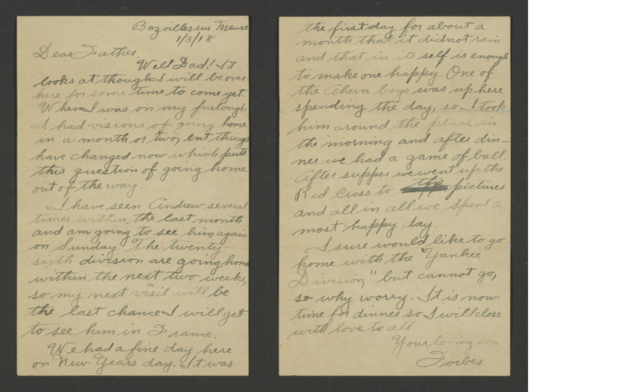 Bazoilles sur Meuse
1/3/18
Dear Father
Well Dad! It
looks as though I will be over
here for some time to come yet.
When I was on my furlough
I had visions of going home
in a month or two, but things
have changed now which puts
this question of going home
out of the way.
I have seen Andrew several
times within the last month
and am going to see him again
on Sunday. The twenty-
sixth division are going home
within the next two weeks,
so my next visit will be
the last chance I will get
to see him in France.
We had a fine day here
on New Years day. It was
the first day for about a
month that it did not rain
and that in its self is enough
to make one happy. One of
the Ahern boys was up here
spending the day, so I took
him around the place in
the morning and after din-
ner we had a game of ball.
After supper we went up the
Red Cross to pictures
and all in all we spent a
most happy day.
I sure would like to go
home with the "Yankee
Division" but cannot go,
so why worry. It is now
time for dinner so I will close
with love to all
Your loving son
Forbes